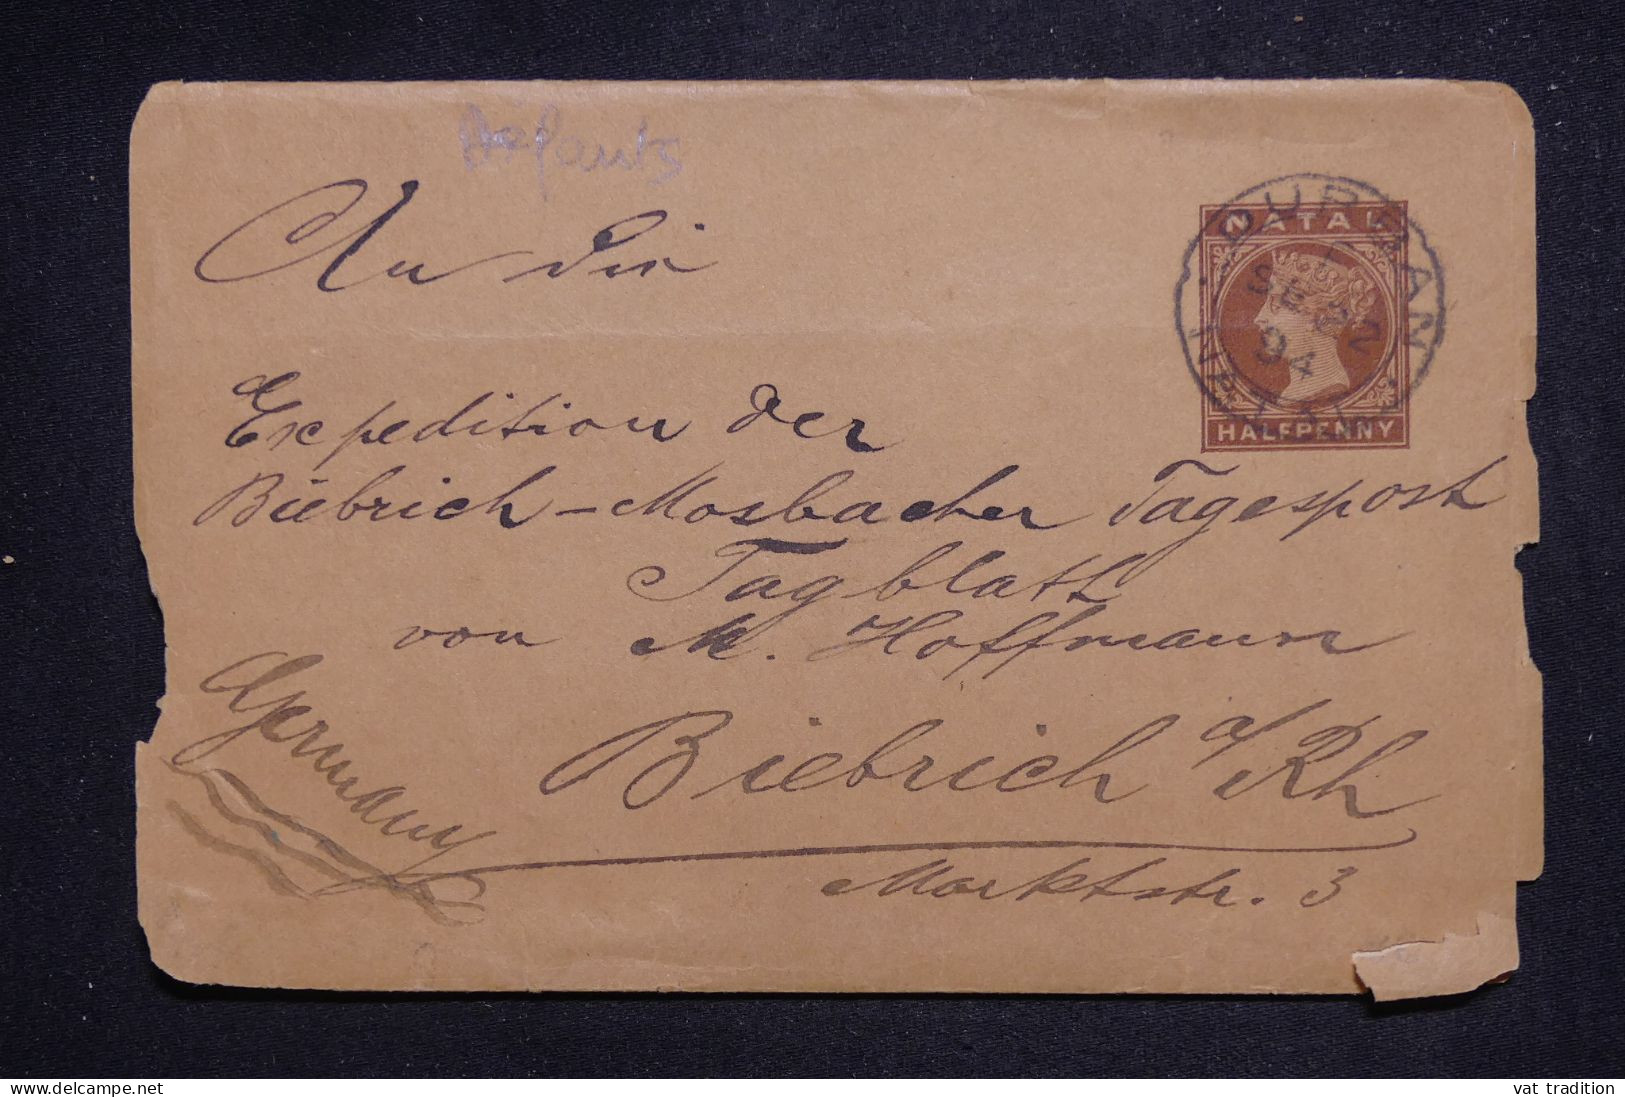 Défauts
An die
NATAL
HALFPENNY
DURBAN
NATAL
SE 22
94
Expedition der
Biebrich-Mosbacher Tagespost
Tagblatt
von M. Hoffmann
Germany
Biebrich a/Rh
Marktstr. 3
www.delcampe.net
vat tradition